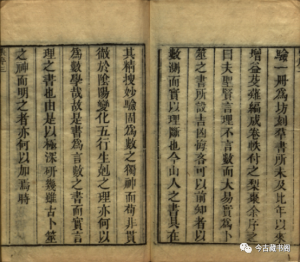 驗一冊為坊刻羣書所未及
增益芟薙編成卷帙付之梨棗余序之
曰夫聖賢言理不言數而大易實為卜
筮之書所設吉凶悔吝可以前知者以
數測而實以理斷也今山人之書其在
其精搜妙驗固為數之獨神而苟非貫
徹於陰陽變化五行生剋之理亦何以
為數學哉故是書為言數之書而實言
理之書也由是以極深研幾雖古卜筮
之神而明之者亦何以加焉時
今古藏书阁